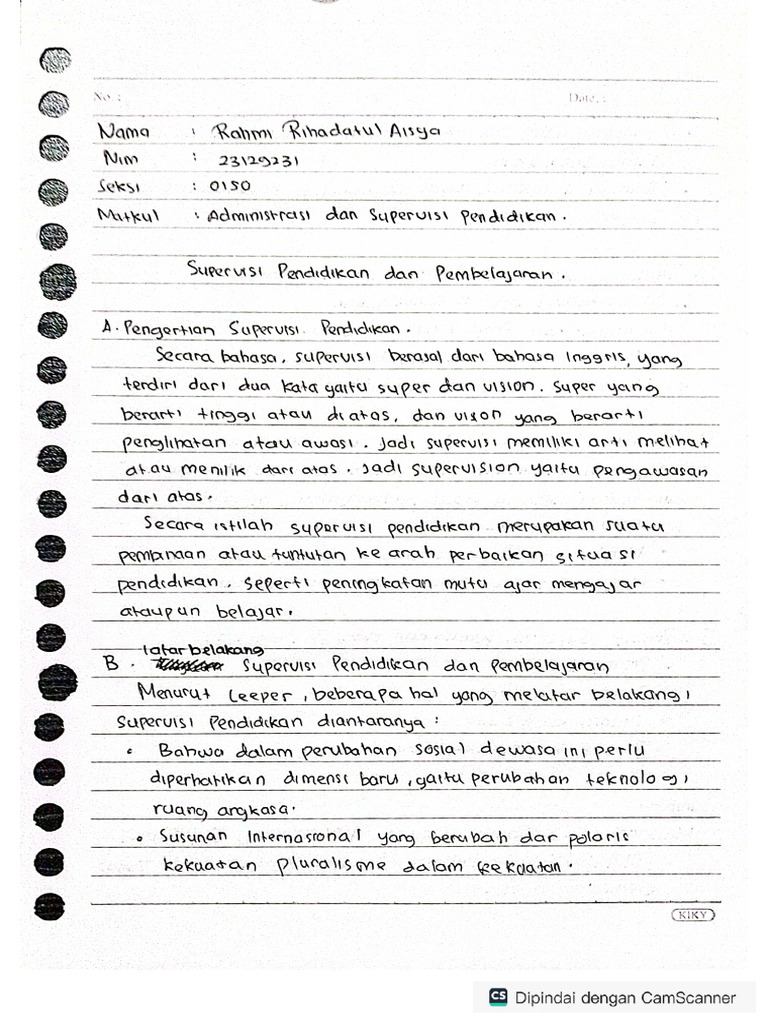 No. :
Date. :
Nama : Rahmi Rihadatul Aisya
Nim : 23129231
Seksi : 0150
Matkul : Administrasi dan Supervisi Pendidikan.
Supervisi Pendidikan dan Pembelajaran.
A. Pengertian Supervisi Pendidikan.
Secara bahasa, supervisi berasal dari bahasa Inggris, yang
terdiri dari dua kata yaitu super dan vision. Super yang
berarti tinggi atau diatas, dan vison yang berarti
penglihatan atau awasi. Jadi supervisi memiliki arti melihat
atau menilik dari atas. Jadi supervision yaitu pengawasan
dari atas.
Secara istilah supervisi pendidikan merupakan suatu
pembinaan atau tuntutan ke arah perbaikan situasi
pendidikan, seperti peningkatan mutu ajar mengajar
ataupun belajar.
latar belakang
B. Supervisi Pendidikan dan Pembelajaran
Menurut Leeper, beberapa hal yang melatar belakangi
Supervisi Pendidikan diantaranya :
• Bahwa dalam perubahan sosial dewasa ini perlu
diperhatikan dimensi baru, yaitu perubahan teknologi
ruang angkasa.
• Susunan Internasional yang berubah dar polaris
kekuatan pluralisme dalam kekuatan.
KIKY
CS Dipindai dengan CamScanner